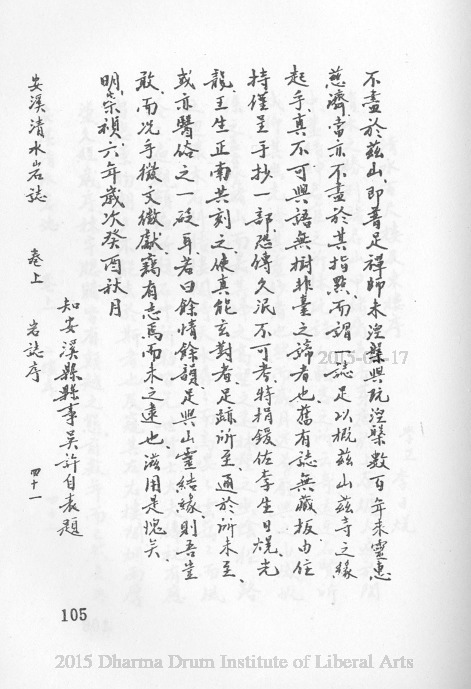 不盡於茲山、即普足禪師未涅槃與既涅槃數百年來靈惠
慈濟、當亦不盡於其指點、而謂一誌足以概茲山茲寺之緣
起乎、真不可與語無樹非臺之諦者也、舊有誌無藏板、由住
持僅呈手抄一部、恐傳久泯不可考、特捐鍰佐李生日燒光
龍、王生正南共刻之、使真能玄對者、足跡所至、通於所未至、
或亦醫俗之一砭耳、若曰餘情餘韻、足與山靈結緣、則吾豈
敢、而況乎徵文徵獻、竊有志焉而未之逮也、滋用是愧矣、
明崇禎六年歲次癸酉秋月
知安溪縣縣事吳許自表題
安溪清水岩誌 卷上 岩誌序 四十一
105
2015-04-17
2015 Dharma Drum Institute of Liberal Arts